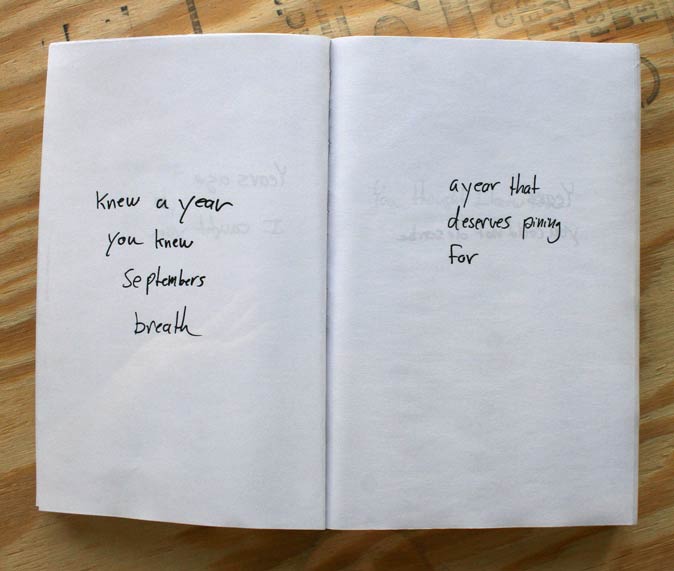 Knew a year
you knew
Septembers
breath
a year that
deserves pining
for